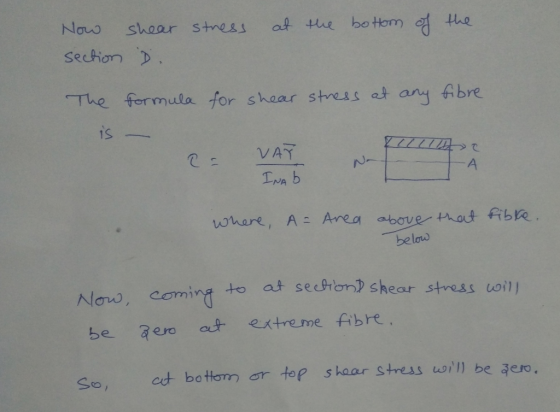 Now shear stress at the bottom of the
section D.
The formula for shear stress at any fibre
is —
τ = VAȲ / I_NA b
N A τ
where, A = Area above/below that fibre.
Now, coming to at section D shear stress will
be zero at extreme fibre.
So, at bottom or top shear stress will be zero.